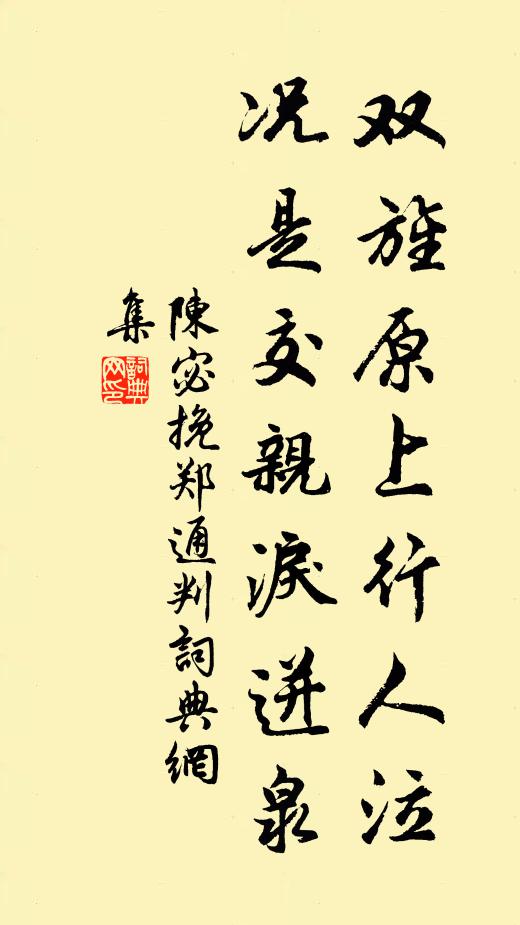 双旌原上行人泣
况是交親淚迸泉
陳宓挽郑通判詞典網
集
詞典
网印